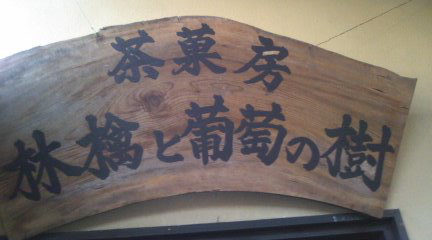 茶菓房
林檎と葡萄の樹